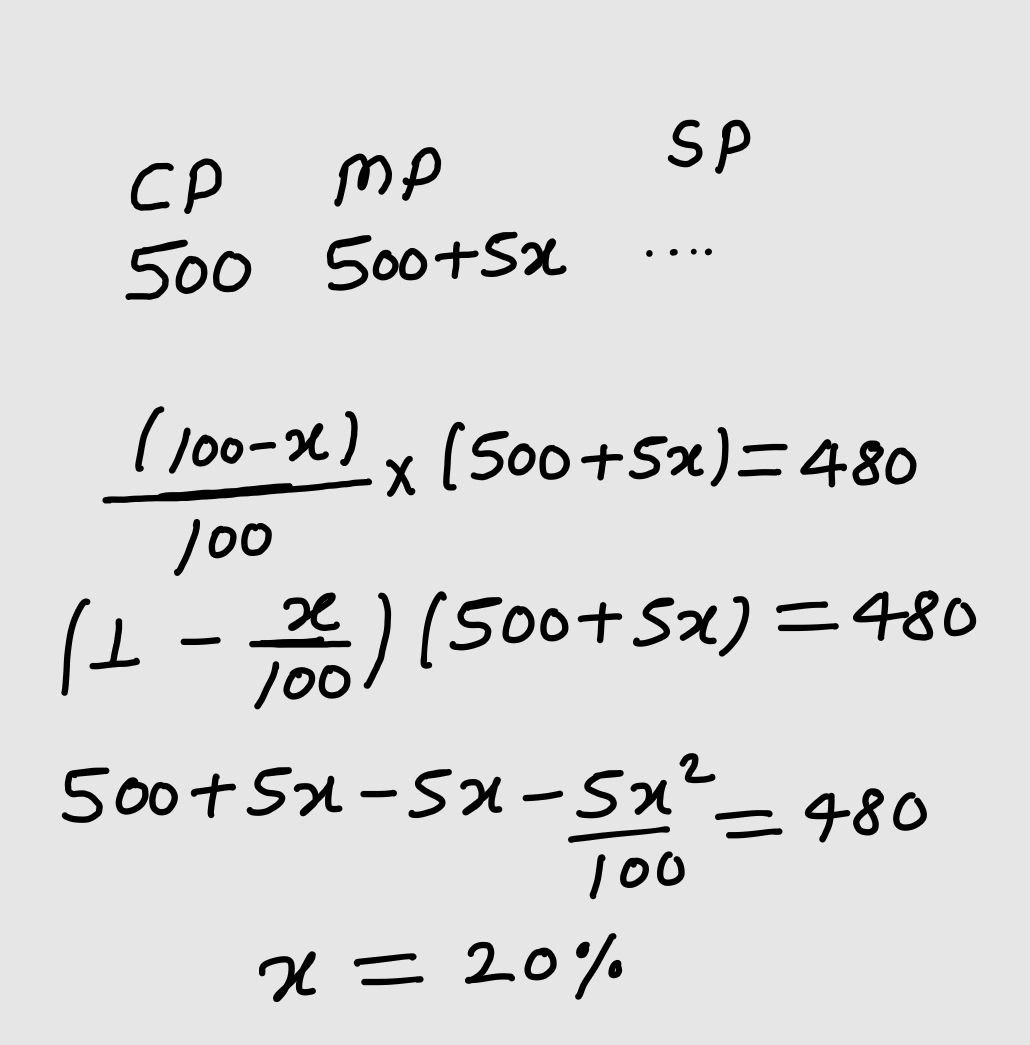 CP MP SP
500 500+5x ....
(100-x)/100 x (500+5x)=480
(1 - x/100) (500+5x) = 480
500+5x-5x-5x²/100 = 480
x = 20%